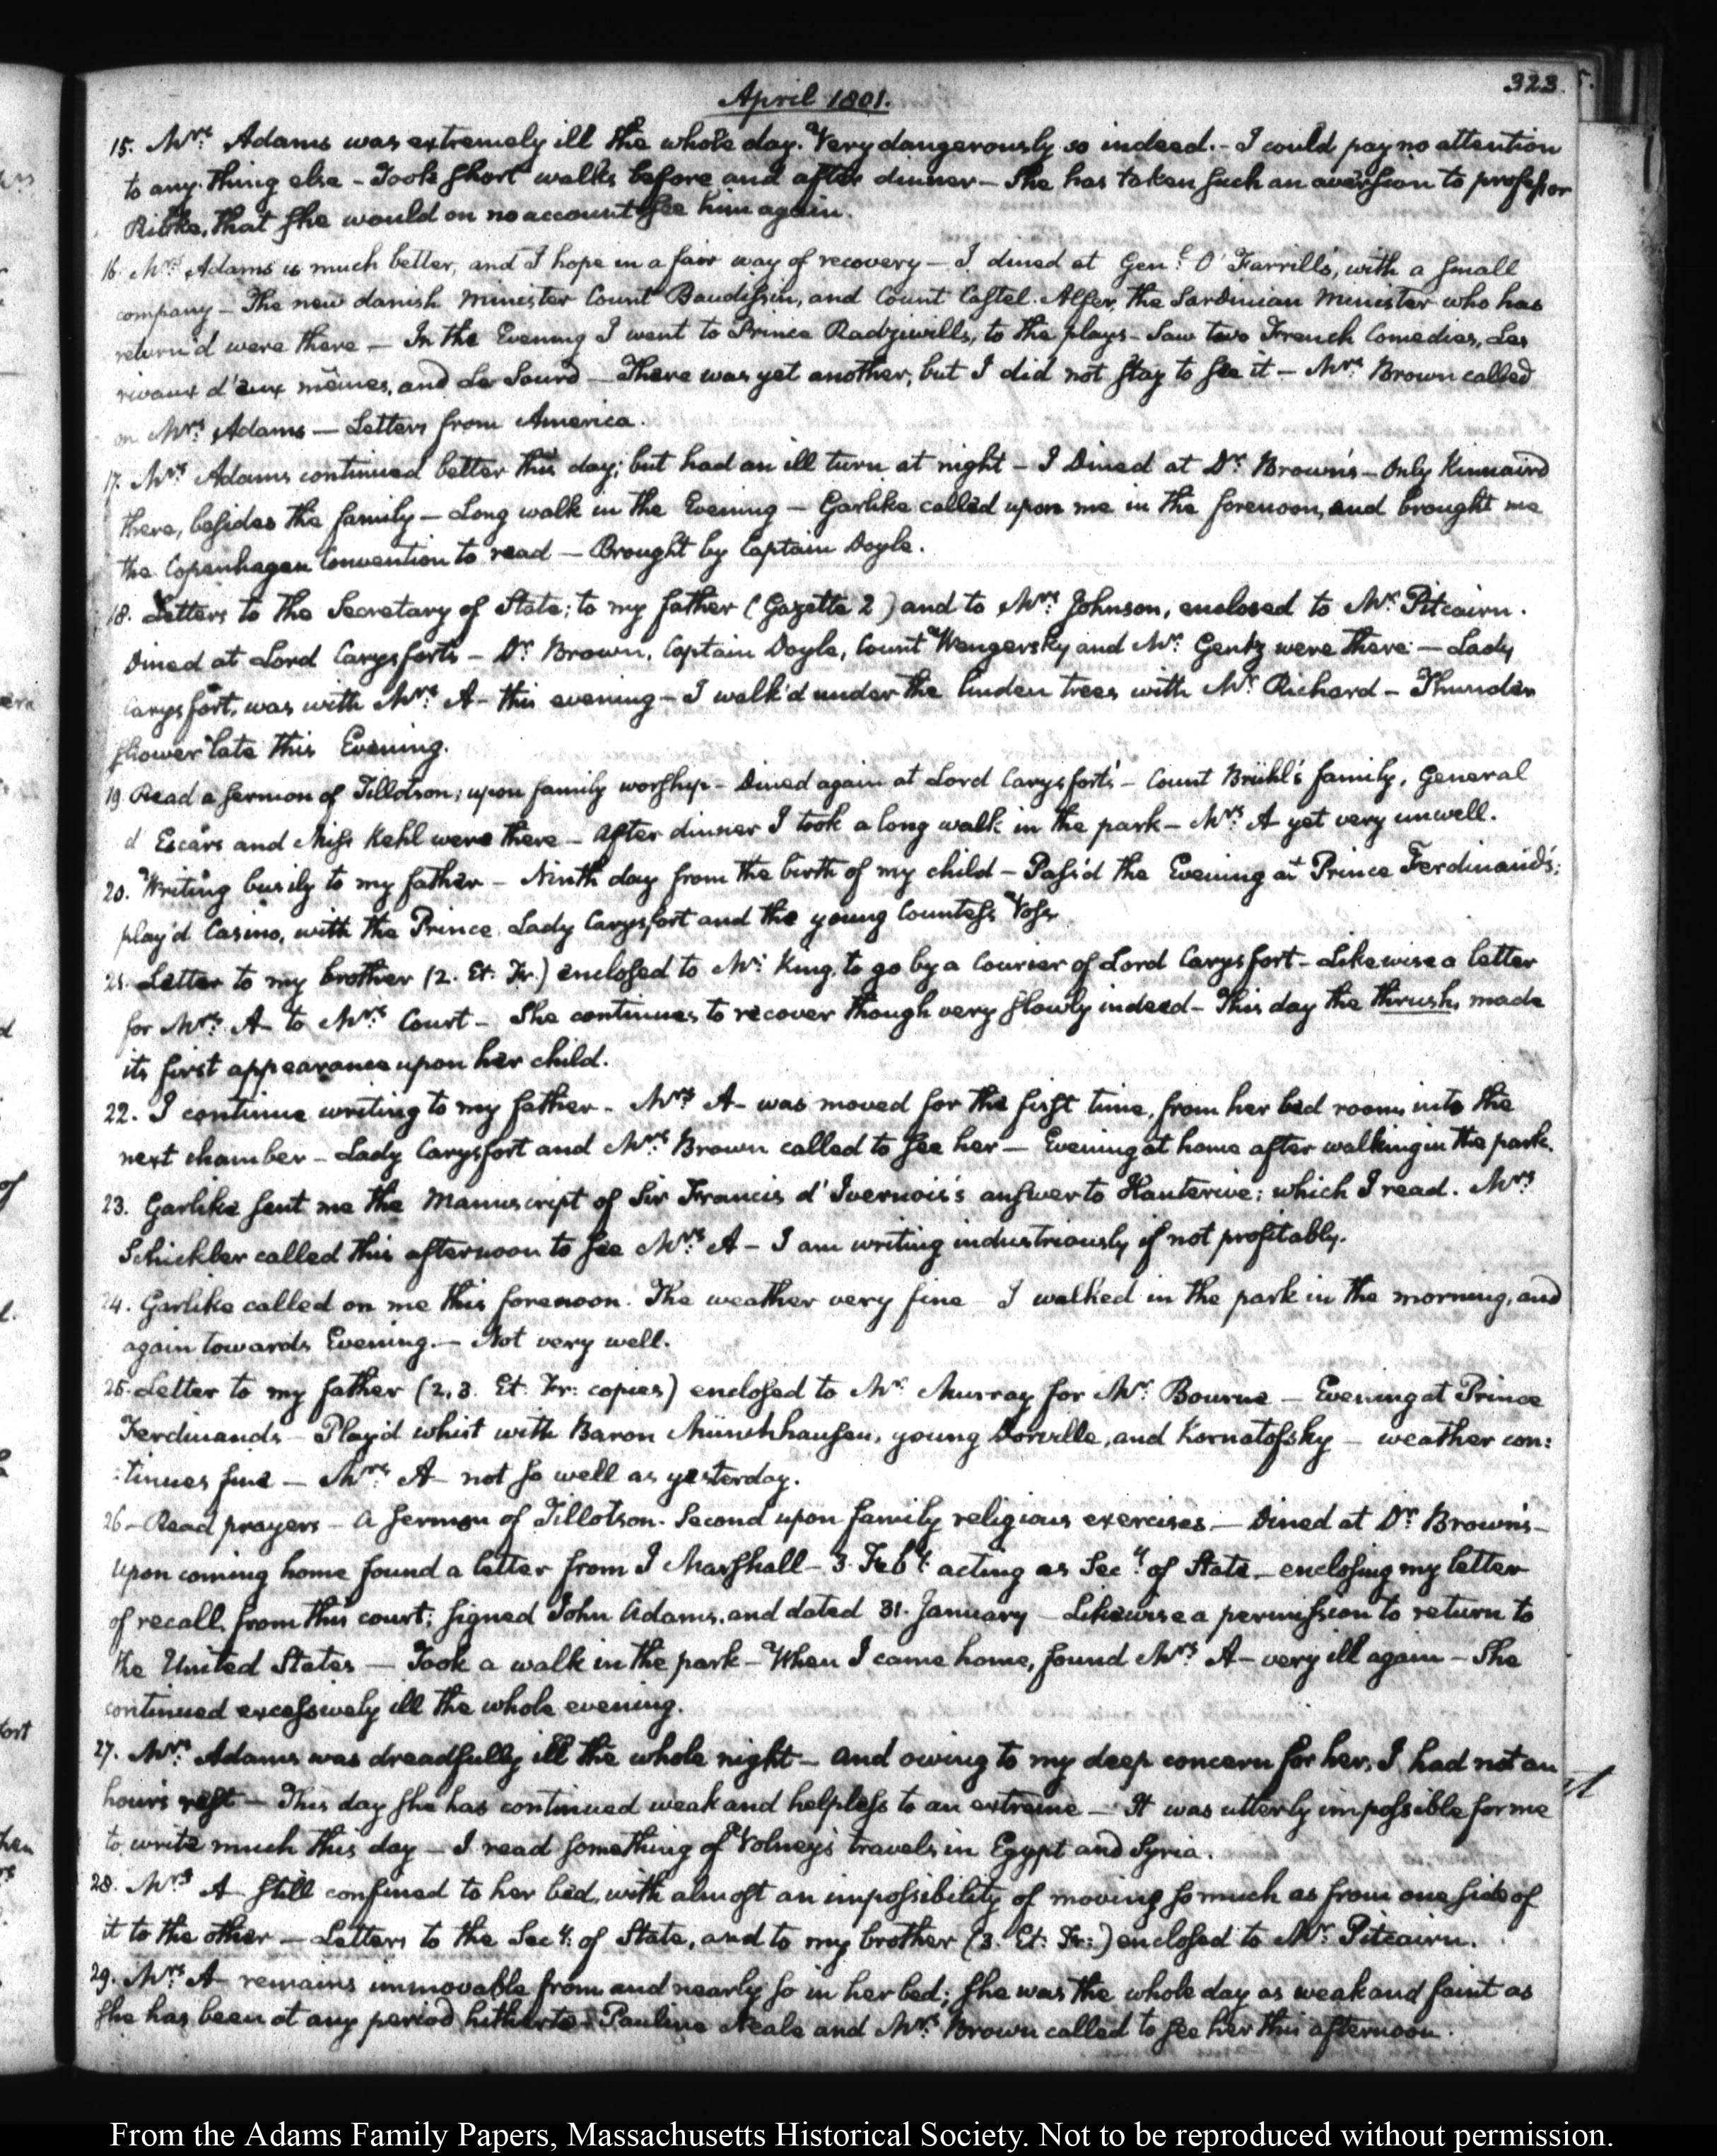 323.
April 1801.
15. Mrs. Adams was extremely ill the whole day. Very dangerously so indeed. - I could pay no attention
to any thing else - Took short walks before and after dinner - She has taken such an aversion to professor
Ribke, that she would on no account see him again.
16. Mrs. Adams is much better, and I hope in a fair way of recovery - I dined at Genl. O'Farrill's, with a small
company - The new danish Minister Count Baudissin, and Count Castel-Alfer, the Sardinian Minister who has
return'd were there - In the Evening I went to Prince Radziwills, to the plays - Saw two French Comedies, Les
rivaux d'eux mêmes, and Le Sourd - There was yet another, but I did not stay to see it - Mrs. Brown called
on Mrs. Adams - Letters from America.
17. Mrs. Adams continued better this day; but had an ill turn at night - I Dined at Dr. Brown's - Only Kinnaird
there, besides the family - Long walk in the Evening - Garlike called upon me in the forenoon, and brought me
the Copenhagen Convention to read - Brought by Captain Doyle.
18. Letters to the Secretary of State; to my father (Gazette 2) and to Mrs. Johnson, enclosed to Mr. Pitcairn.
Dined at Lord Carysfort's - Dr. Brown, Captain Doyle, Count Wengersky and Mr. Gentz were there: - Lady
Carysfort, was with Mrs. A- this evening - I walk'd under the linden trees with Mr. Richard - Thunder
shower late this Evening.
19. Read a sermon of Tillotson; upon family worship - Dined again at Lord Carysfort's - Count Brühl's family, General
d'Escars and Miss Kehl were there - After dinner I took a long walk in the park - Mrs. A yet very unwell.
20. Writing busily to my father - Ninth day from the birth of my child - Pass'd the Evening at Prince Ferdinand's;
play'd Casino, with the Prince, Lady Carysfort and the young Countess Voss.
21. Letter to my brother (2. Et. Fr.) enclosed to Mr. King, to go by a Courier of Lord Carysfort - Likewise a letter
for Mrs. A- to Mrs. Court - She continues to recover though very slowly indeed - This day the thrush, made
its first appearance upon her child.
22. I continue writing to my father - Mrs. A- was moved for the first time, from her bed room, into the
next chamber - Lady Carysfort and Mrs. Brown called to see her - Evening at home after walking in the park.
23. Garlike sent me the Manuscript of Sir Francis d'Ivernois's answer to Hauterive; which I read. Mrs.
Schickler called this afternoon to see Mrs. A - I am writing industriously, if not profitably.
24. Garlike called on me this forenoon. The weather very fine - I walked in the park in the morning, and
again towards Evening. - Not very well.
25. Letter to my father (2, 3. Et. Fr: copies) enclosed to Mr. Murray for Mr. Bourne - Evening at Prince
Ferdinands - Play'd whist with Baron Münchhausen, young Dorville, and Kornatofsky - weather con:
:tinues fine - Mrs. A- not so well as yesterday.
26 - Read prayers - A sermon of Tillotson. Second upon family religious exercises - Dined at Dr. Brown's -
Upon coming home found a letter from J Marshall - 3. Feby. acting as Secy. of State - enclosing my letter
of recall, from this court; signed John Adams, and dated 31. January - Likewise a permission to return to
the United States - Took a walk in the park - When I came home, found Mrs. A- very ill again - She
continued excessively ill the whole evening.
27. Mrs. Adams was dreadfully ill the whole night - And owing to my deep concern for her, I had not an
hour's rest - This day she has continued weak and helpless to an extreme - It was utterly impossible for me
to write much this day - I read something of Volney's travels in Egypt and Syria.
28. Mrs. A- still confined to her bed, with almost an impossibility of moving so much as from one side of
it to the other - Letters to the Secy: of State, and to my brother (3. Et: Fr:) enclosed to Mr. Pitcairn.
29. Mrs. A- remains immovable from and nearly so in her bed; she was the whole day as weak and faint as
she has been at any period hitherto - Pauline Neale and Mrs. Brown called to see her this afternoon.
From the Adams Family Papers, Massachusetts Historical Society. Not to be reproduced without permission.